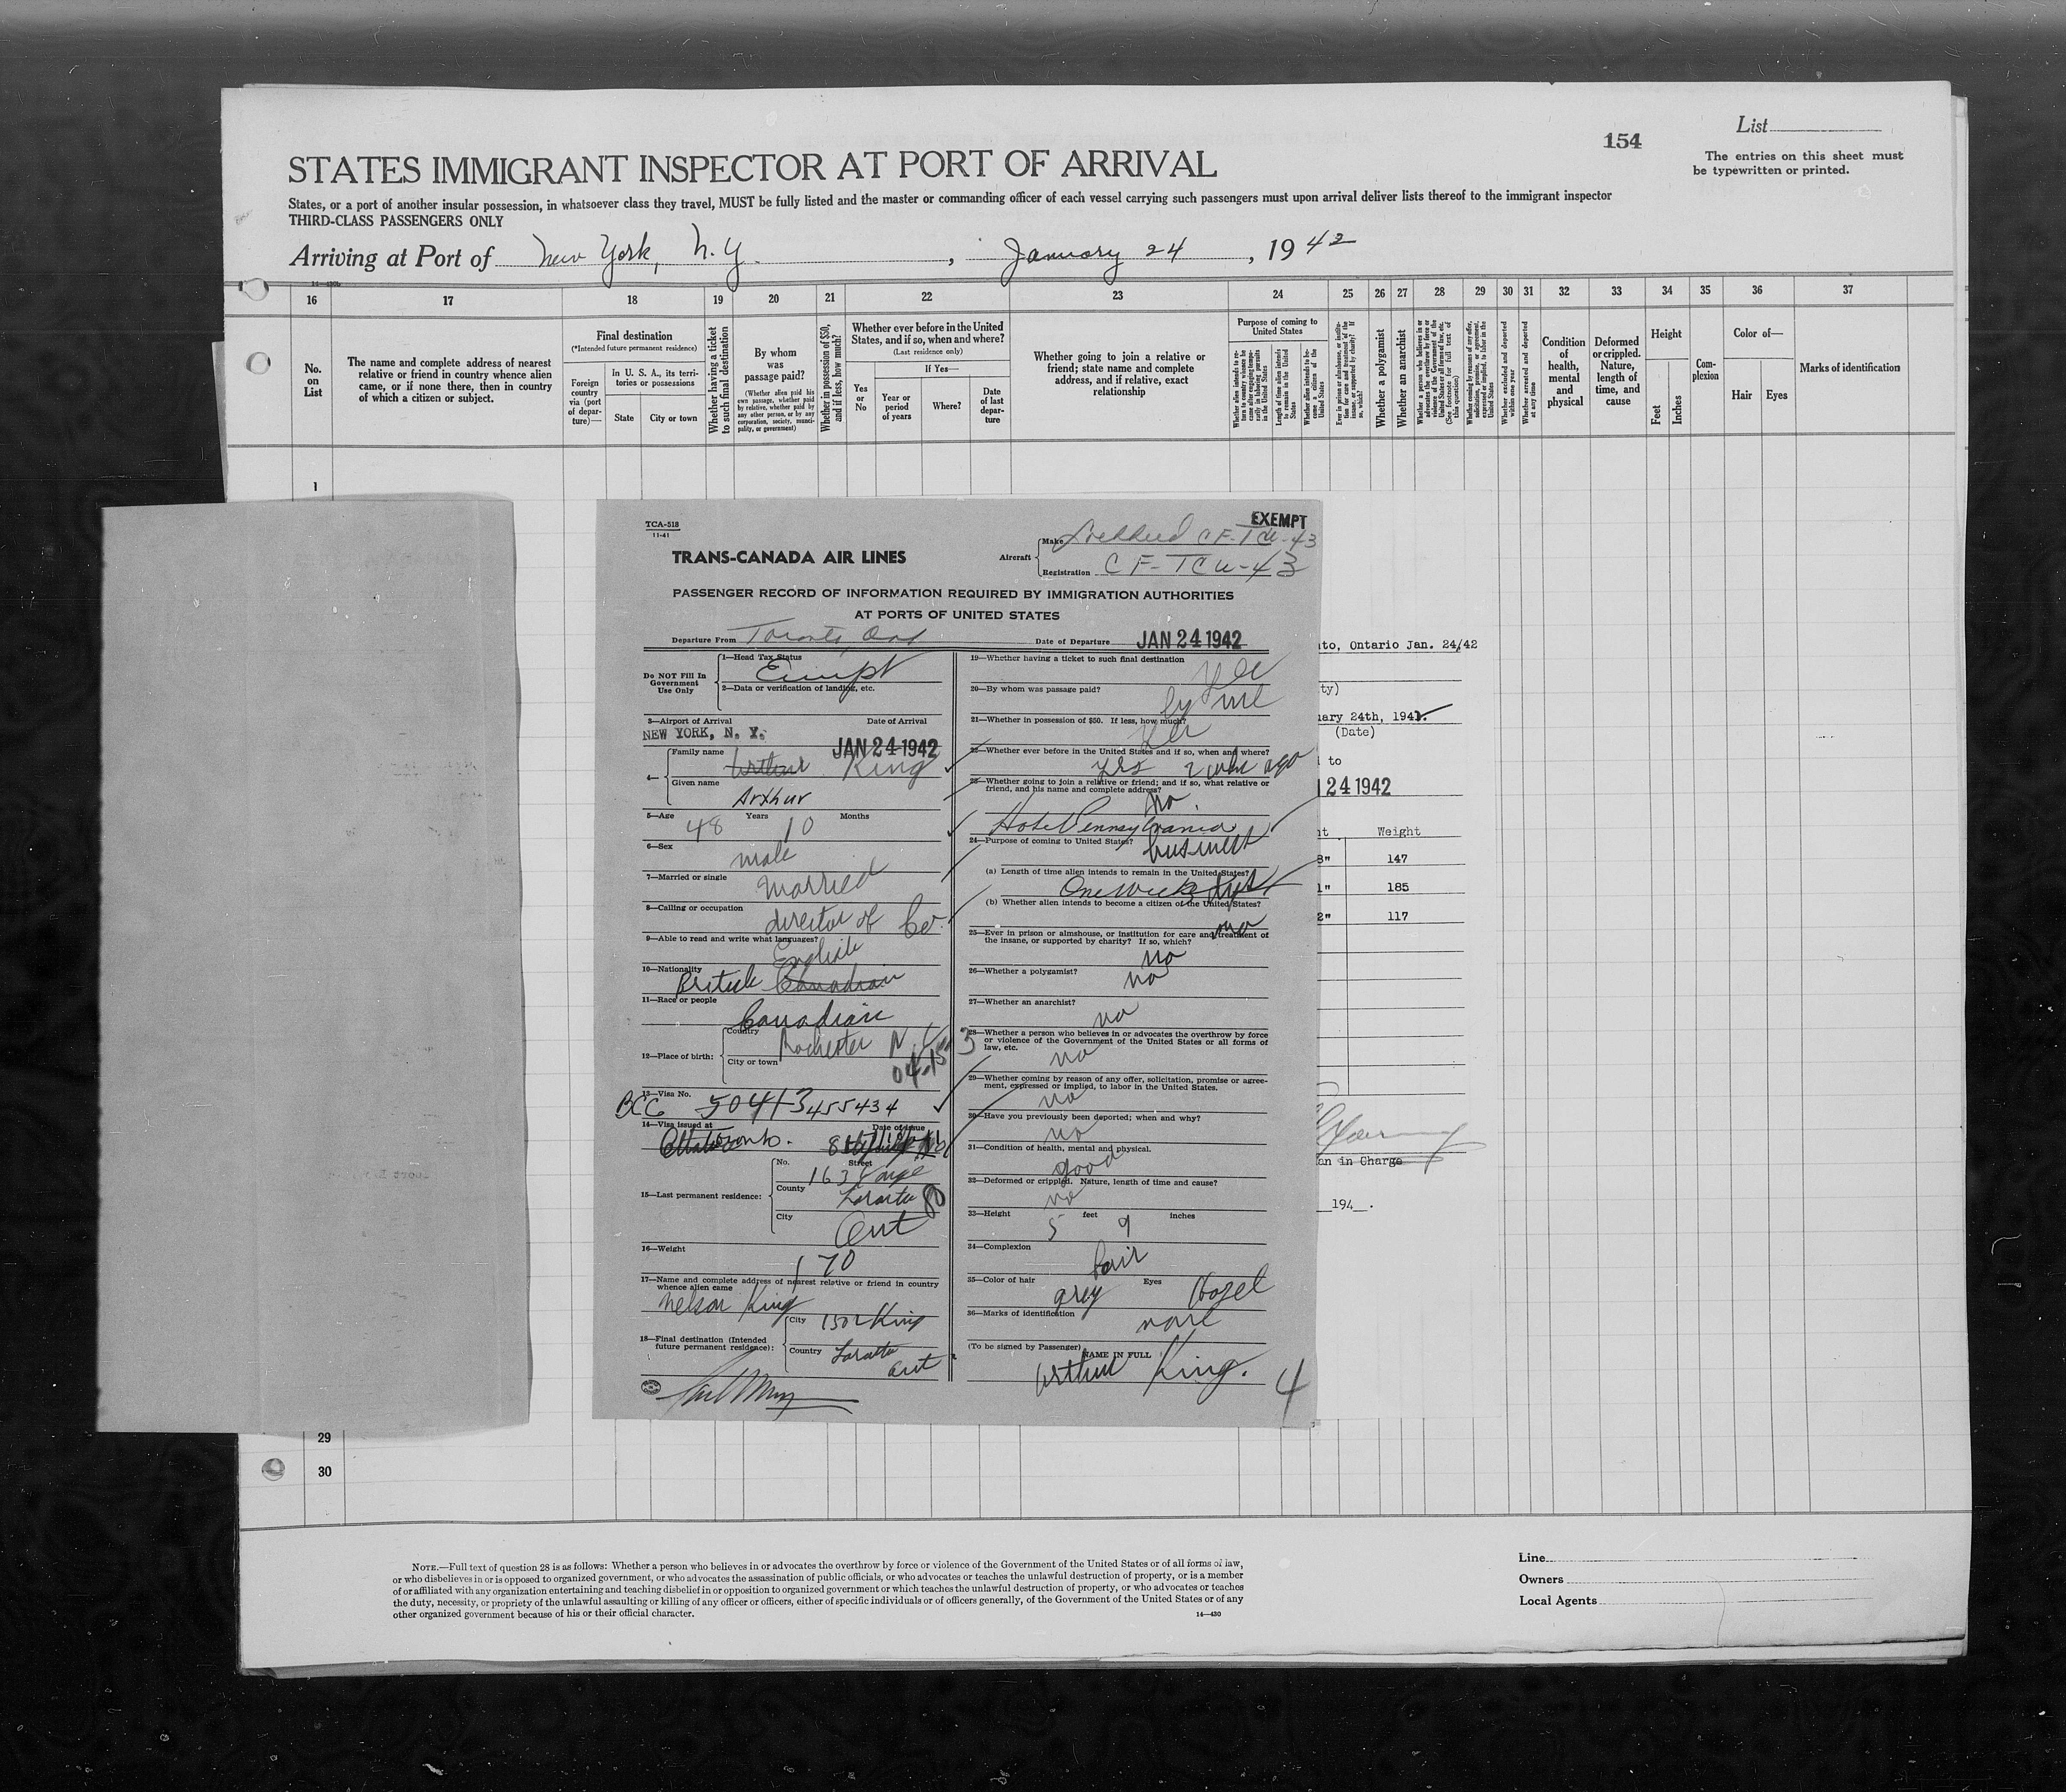 154
List
The entries on this sheet must
be typewritten or printed.
STATES IMMIGRANT INSPECTOR AT PORT OF ARRIVAL
States, or a port of another insular possession, in whatsoever class they travel, MUST be fully listed and the master or commanding officer of each vessel carrying such passengers must upon arrival deliver lists thereof to the immigrant inspector
THIRD-CLASS PASSENGERS ONLY
Arriving at Port of New York, N. Y. , January 24 , 1942
16 17 18 19 20 21 22 23 24 25 26 27 28 29 30 31 32 33 34 35 36 37
No. on List
The name and complete address of nearest relative or friend in country whence alien came, or if none there, then in country of which a citizen or subject.
Final destination
(*Intended future permanent residence)
Foreign country via (port of departure)—
In U. S. A., its territories or possessions
State
City or town
Whether having a ticket to such final destination
By whom was passage paid?
(Whether alien paid his own passage, whether paid by relative, whether paid by any other person, or by any corporation, society, municipality, or government)
Whether in possession of $50, and if less, how much?
Whether ever before in the United States, and if so, when and where?
(Last residence only)
Yes or No
If Yes—
Year or period of years
Where?
Date of last departure
Whether going to join a relative or friend; state name and complete address, and if relative, exact relationship
Purpose of coming to United States
Whether alien intends to return to country whence he came after engaging temporarily in laboring pursuits in the United States
Length of time alien intends to remain in the United States
Whether alien intends to become a citizen of the United States
Ever in prison or almshouse, or institution for care and treatment of the insane, or supported by charity? If so, which?
Whether a polygamist
Whether an anarchist
Whether a person who believes in or advocates the overthrow by force or violence of the Government of the United States or all forms of law, etc. (See footnote for full text of this question)
Whether coming by reason of any offer, solicitation, promise, or agreement, expressed or implied, to labor in the United States
Whether excluded and deported within one year
Whether arrested and deported at any time
Condition of health, mental and physical
Deformed or crippled. Nature, length of time, and cause
Height
Feet
Inches
Complexion
Color of—
Hair
Eyes
Marks of identification
1
TCA-518
11-41
EXEMPT
TRANS-CANADA AIR LINES
Aircraft
Make Lockheed CF-TCU-43
Registration CF-TCU-43
PASSENGER RECORD OF INFORMATION REQUIRED BY IMMIGRATION AUTHORITIES
AT PORTS OF UNITED STATES
Departure From Toronto, Ont
Date of Departure JAN 24 1942
Do NOT Fill In Government Use Only
1—Head Tax Status
Exempt
2—Data or verification of landing, etc.
3—Airport of Arrival
Date of Arrival
NEW YORK, N. Y.
JAN 24 1942
4—
Family name Arthur King
Given name Arthur
5—Age 48 Years 10 Months
6—Sex male
7—Married or single Married
8—Calling or occupation director of Co.
9—Able to read and write what languages? English
10—Nationality British Canadian
11—Race or people
Canadian
12—Place of birth:
Country
Rochester N.Y.
City or town
13—Visa No.
BCC 50413 455434
14—Visa issued at
Date of issue
Toronto.
15—Last permanent residence:
No. Street
163 Yonge
County Toronto
City
Ont
16—Weight
170
17—Name and complete address of nearest relative or friend in country
whence alien came
Nelson King
18—Final destination (Intended
future permanent residence):
City 1502 King
Country Toronto
Ont
19—Whether having a ticket to such final destination
yes
20—By whom was passage paid?
by me
21—Whether in possession of $50. If less, how much?
yes
22—Whether ever before in the United States and if so, when and where?
yes 2 week ago
23—Whether going to join a relative or friend; and if so, what relative or
friend, and his name and complete address?
no.
Hotel Pennsylvania
24—Purpose of coming to United States?
business
(a) Length of time alien intends to remain in the United States?
One week
(b) Whether alien intends to become a citizen of the United States?
no
25—Ever in prison or almshouse, or institution for care and treatment of
the insane, or supported by charity? If so, which?
no
26—Whether a polygamist?
no
27—Whether an anarchist?
no
28—Whether a person who believes in or advocates the overthrow by force
or violence of the Government of the United States or all forms of
law, etc.
no
29—Whether coming by reason of any offer, solicitation, promise or agree-
ment, expressed or implied, to labor in the United States.
no
30—Have you previously been deported; when and why?
no
31—Condition of health, mental and physical.
good
32—Deformed or crippled. Nature, length of time and cause?
no
33—Height 5 feet 9 inches
34—Complexion
fair
35—Color of hair
Eyes
grey Hazel
36—Marks of identification
none
(To be signed by Passenger)
NAME IN FULL
Arthur King.
4
ito, Ontario Jan. 24/42
ty)
uary 24th, 1942.
(Date)
l to
24 1942
ht Weight
8" 147
1" 185
2" 117
an in Charge
194 .
29
30
NOTE.—Full text of question 28 is as follows: Whether a person who believes in or advocates the overthrow by force or violence of the Government of the United States or of all forms of law,
or who disbelieves in or is opposed to organized government, or who advocates the assassination of public officials, or who advocates or teaches the unlawful destruction of property, or is a member
of or affiliated with any organization entertaining and teaching disbelief in or opposition to organized government or which teaches the unlawful destruction of property, or who advocates or teaches
the duty, necessity, or propriety of the unlawful assaulting or killing of any officer or officers, either of specific individuals or of officers generally, of the Government of the United States or of any
other organized government because of his or their official character.
14—430
Line
Owners
Local Agents